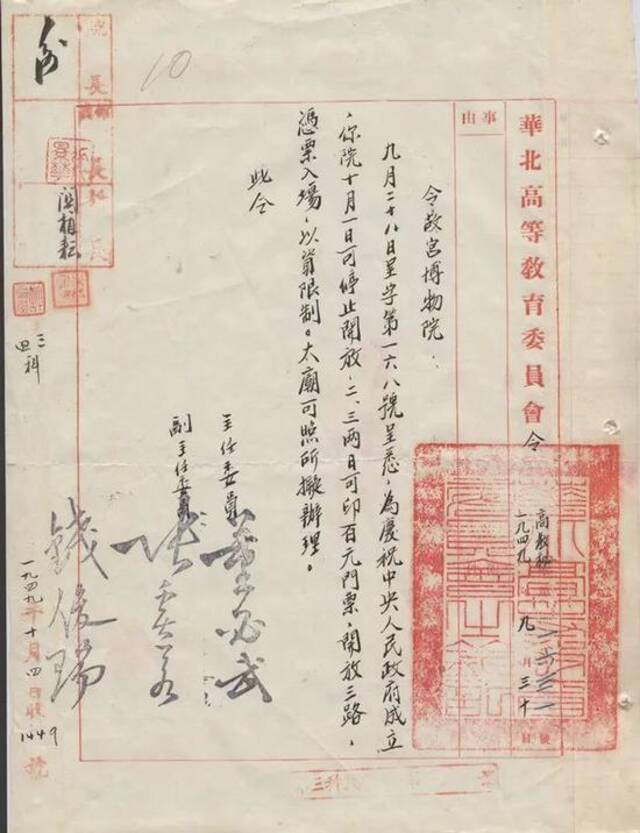 華北高等教育委員會令
高教秘
一九四九 九月三十日
事由
令故宮博物院：
九月二十八日呈字第一六八號呈悉，為慶祝中央人民政府成立
，你院十月一日可停止開放，二、三兩日可印百元門票，開放三路，
憑票入場，以資限制。太廟可照所擬辦理。
此令
主任委員 董必武
副主任委員 張奚若
錢俊瑞
三科
一九四九年十月四日收
1449號
10